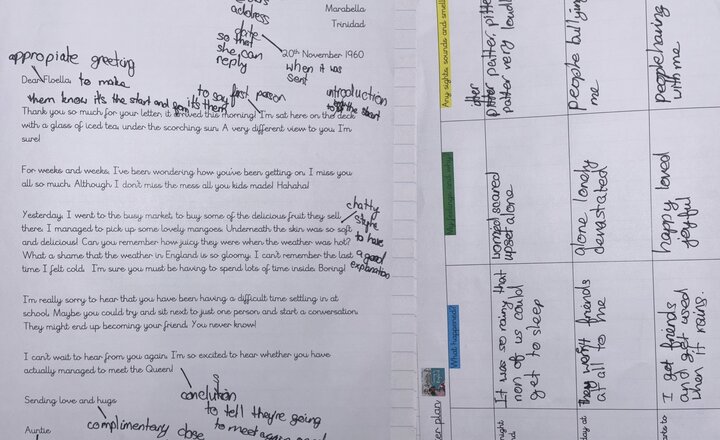 address
Marabella
Trinidad
date
so that
she can
reply
20th November 1960
when it was
sent
appropiate greeting
Dear Floella,
to make
them know it's the start and
it's them
to say first person
introduction
Thank you so much for your letter, it arrived this morning! I'm sat here on the deck
with a glass of iced tea, under the scorching sun. A very different view to you I'm
sure!
For weeks and weeks, I've been wondering how you've been getting on. I miss you
all so much. Although, I don't miss the mess all you kids made! Hahaha!
Yesterday, I went to the busy market to buy some of the delicious fruit they sell
there. I managed to pick up some lovely mangoes. Underneath the skin was so soft
and delicious! Can you remember how juicy they were when the weather was hot?
What a shame that the weather in England is so gloomy. I can't remember the last
time I felt cold. I'm sure you must be having to spend lots of time inside. Boring!
chatty
style
to have
a good
explanation
I'm really sorry to hear that you have been having a difficult time settling in at
school. Maybe you could try and sit next to just one person and start a conversation.
They might end up becoming your friend. You never know!
I can't wait to hear from you again. I'm so excited to hear whether you have
actually managed to meet the Queen!
conclution
to tell they're going
to meet again
Sending love and hugs
complimentary close
Auntie
Any sights, sounds and smells
pitter patter, pitter
patter very loudly
people bullying
me
people having
with me
worried scared
upset alone
alone lonely
devastated
happy loved
joyful
What happened?
It was so rainy that
non of us could
get to sleep
They won't friends
at all to me
I got friends
and got used
when it rains.
plan
night
day at